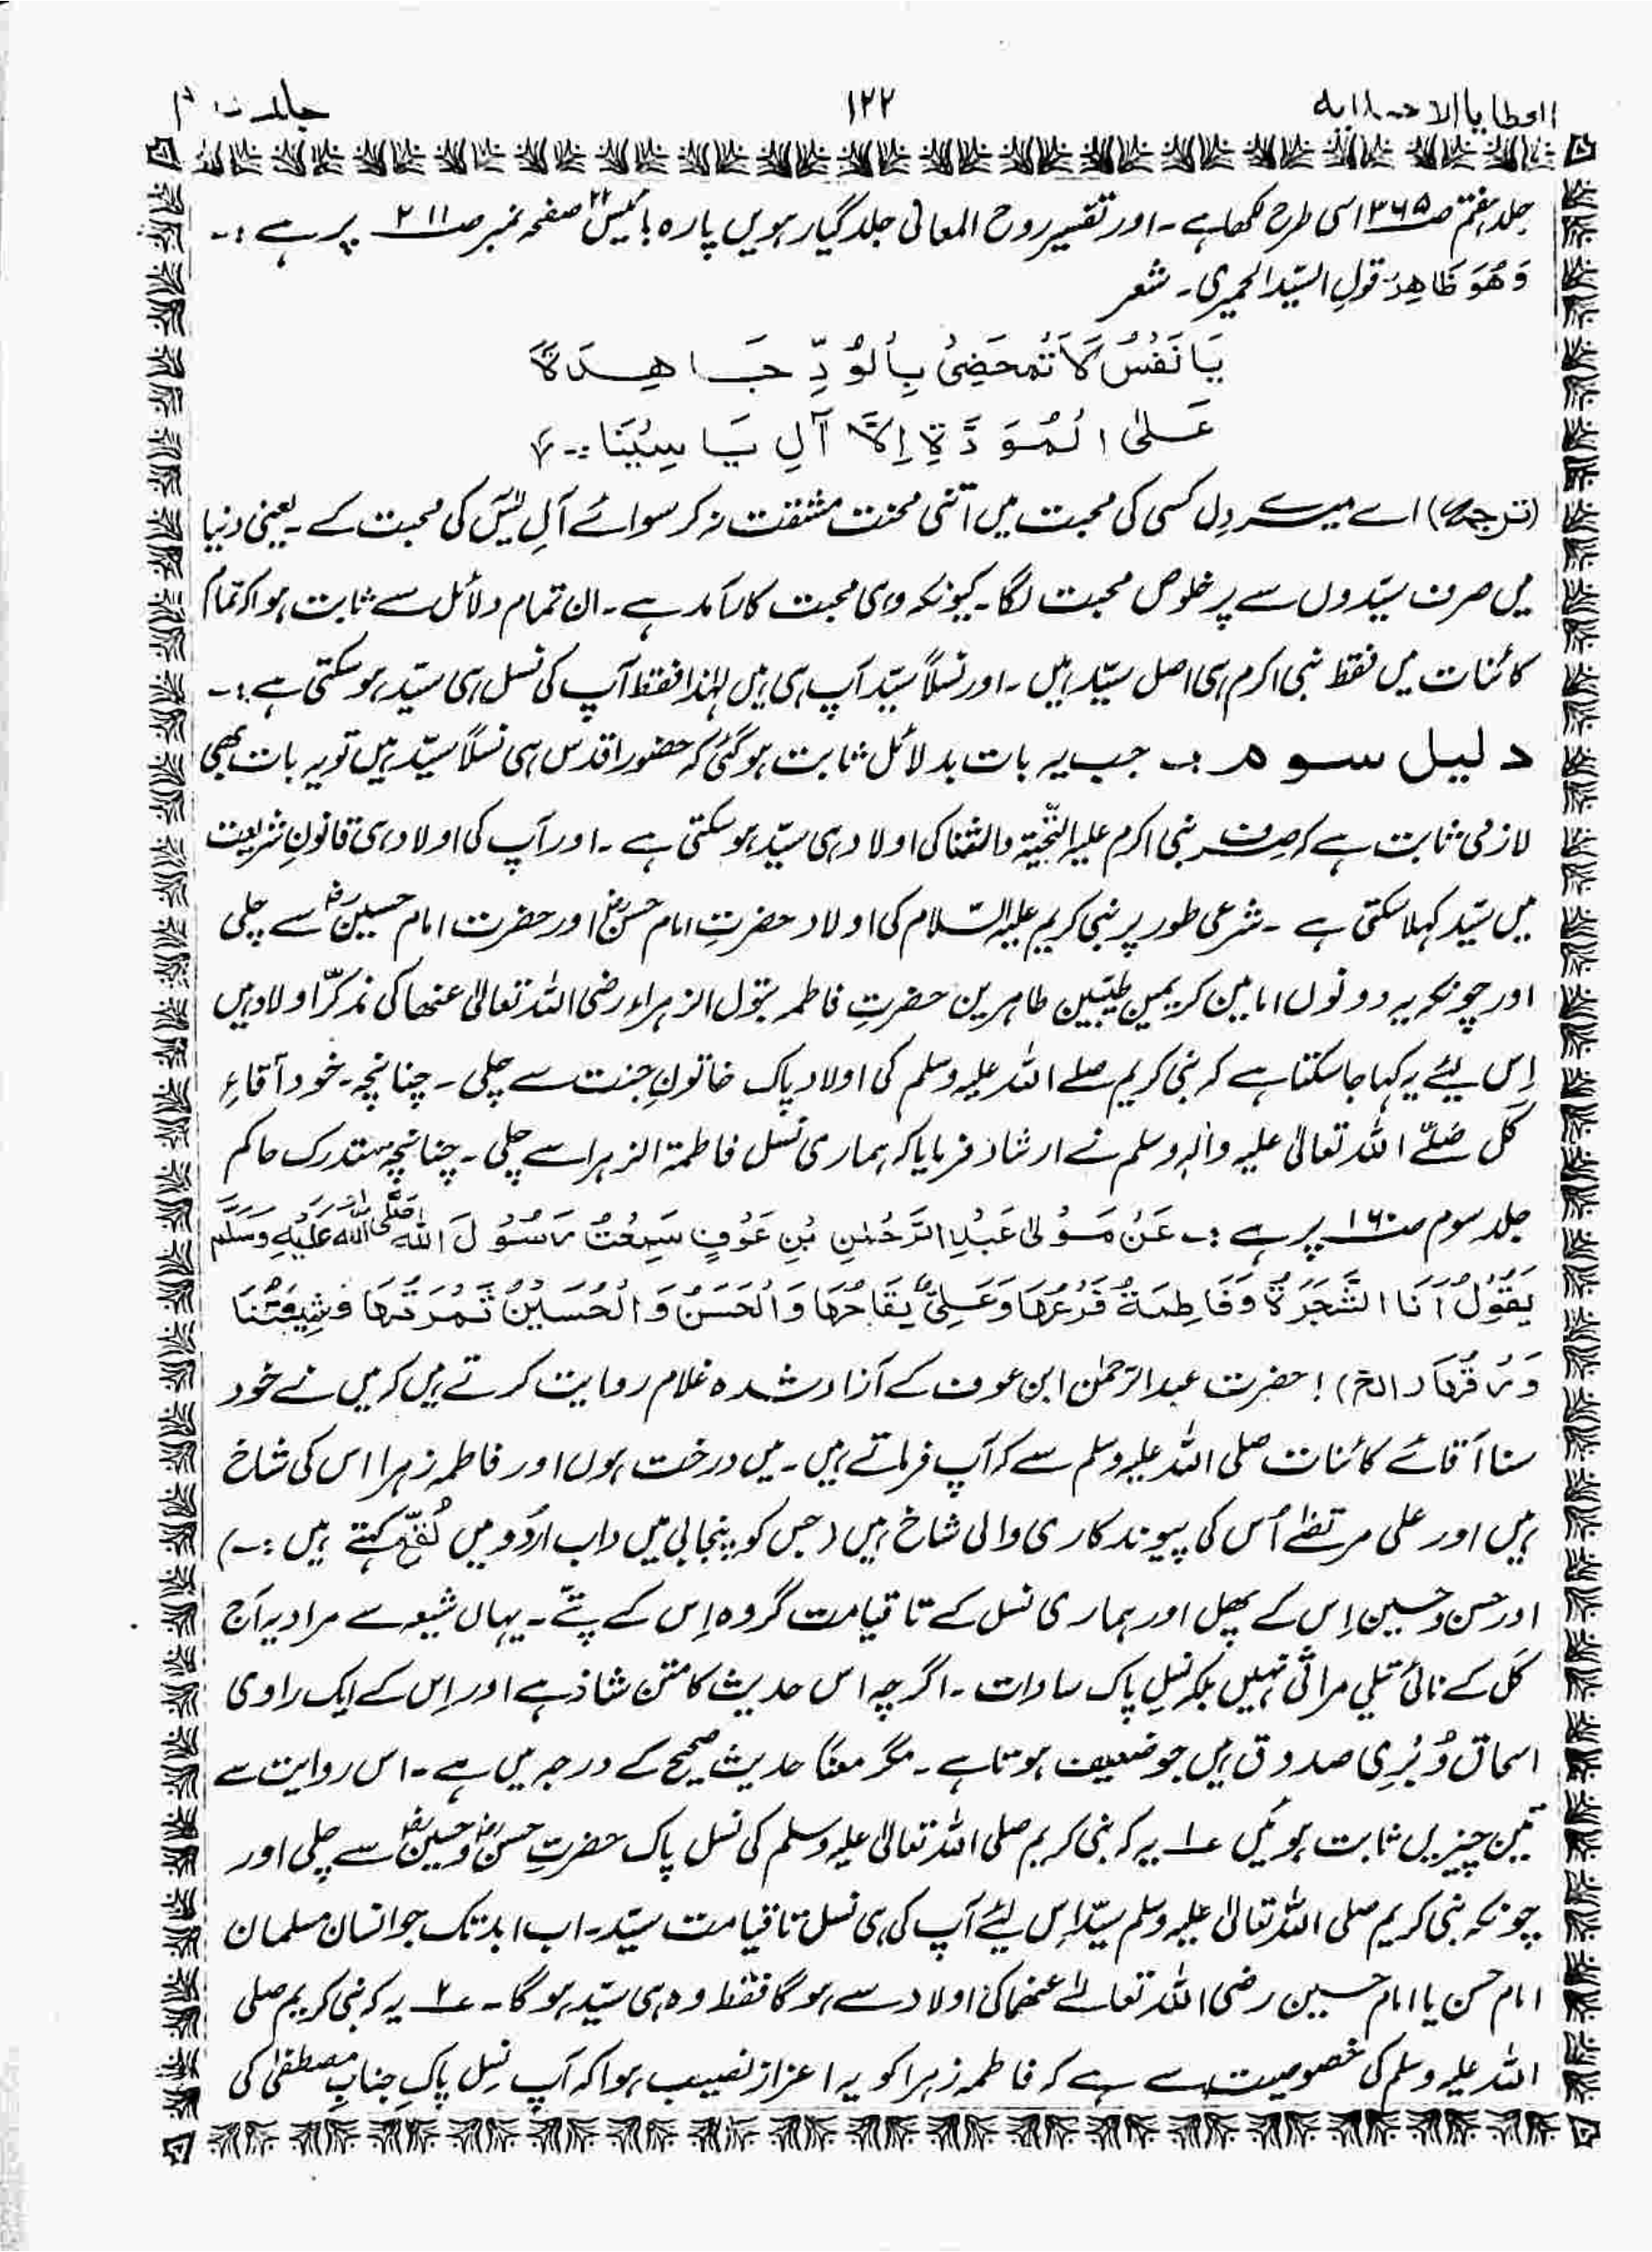 العطایا الاحمدیہ ۱۲۲ جلد
جلد ہفتم صـ۳۶۵ اسی طرح لکھا ہے۔ اور تفسیر روح المعانی جلد گیارہویں پارہ بائیس۲۲ صفحہ نمبر صـ۲۱۱ پر ہے :۔
وَهُوَ ظَاهِرُ قولِ السّیّد الحمیری۔ شعر
یَا نَفْسُ لَا تُمْحَضِیْ بِالْوُدِّ جَاهِدَةً
عَلیٰ الْمُوَدَّةِ اِلَّا آلِ یَاسِیْنَا :۔
(ترجمہ) اے میرے دِل کسی کی محبت میں اتنی محنت مشقت نہ کر سوائے آلِ یٰسٓ کی محبت کے۔ یعنی دنیا
میں صرف سیّدوں سے پر خلوص محبت لگا۔ کیونکہ وہی محبت کارآمد ہے۔ ان تمام دلائل سے ثابت ہوا کہ تمام
کائنات میں فقط نبی اکرم ہی اصل سیّد ہیں۔ اور نسلاً سیّد آپ ہی ہیں لہٰذا فقط آپ کی نسل ہی سیّد ہو سکتی ہے :۔
دلیل سوم :۔ جب یہ بات بدلائل ثابت ہو گئی کہ حضور اقدس ہی نسلاً سیّد ہیں تو یہ بات بھی
لازمی ثابت ہے کہ صرف نبی اکرم علیہ التّحیّۃ والثنا کی اولاد ہی سیّد ہو سکتی ہے۔ اور آپ کی اولاد ہی قانونِ شریعت
میں سیّد کہلا سکتی ہے۔ شرعی طور پر نبی کریم علیہ السّلام کی اولاد حضرتِ امام حسنؓ اور حضرت امام حسینؓ سے چلی
اور چونکہ یہ دونوں امامین کریمین طیّبین طاہرین حضرتِ فاطمہ بتول الزہراء رضی اللہ تعالیٰ عنھا کی مذکّر اولاد ہیں
اِس لیئے یہ کہا جا سکتا ہے کہ نبی کریم صلے اللہ علیہ وسلم کی اولاد پاک خاتونِ جنت سے چلی۔ چنانچہ۔ خود آقاءِ
کُل صَلّے اللہ تعالیٰ علیہ والہ وسلم نے ارشاد فرمایا کہ ہماری نسل فاطمۃ الزہرا سے چلی۔ چنانچہ مستدرک حاکم
جلد سوم صـ۱۶۰ پر ہے :۔ عَنْ مَوْلٰی عَبْدِ الرَّحْمٰنِ بْنِ عَوْفٍ سَمِعْتُ رَسُوْلَ اللّٰہِ صَلَّی اللّٰہُ عَلَیْهِ وَسَلَّمَ
یَقُوْلُ اَنَا الشَّجَرَةُ وَفَاطِمَةُ فَرْعُهَا وَعَلِیٌّ لِقَاحُهَا وَالْحَسَنُ وَالْحُسَیْنُ ثَمْرَتُهَا وَشِیْعَتُنَا
وَرَقُهَا (الخ) ! حضرت عبد الرّحمٰن ابن عوف کے آزاد شدہ غلام روایت کرتے ہیں کہ میں نے خود
سنا آقائے کائنات صلی اللہ علیہ وسلم سے کہ آپ فرماتے ہیں۔ میں درخت ہوں اور فاطمہ زہرا اس کی شاخ
ہیں اور علی مرتضےٰ اُس کی پیوند کاری والی شاخ ہیں (جس کو پنجابی میں داب اردُو میں لُقَح کہتے ہیں :۔)
اور حسن و حسین اِس کے پھل اور ہماری نسل کے تا قیامت گروہ اِس کے پتّے۔ یہاں شیعہ سے مراد یہ آج
کَل کے نائی تیلی مراثی نہیں بلکہ نسلِ پاک سادات۔ اگرچہ اس حدیث کا متن شاذ ہے اور اِس کے ایک راوی
اسحاق دُبُرِی صدوق ہیں جو ضعیف ہوتا ہے۔ مگر معنًا حدیث صحیح کے درجہ میں ہے۔ اس روایت سے
تین چیزیں ثابت ہوئیں عـ۱ یہ کہ نبی کریم صلی اللہ تعالیٰ علیہ وسلم کی نسل پاک حضرتِ حسنؓ و حسینؓ سے چلی اور
چونکہ نبی کریم صلی اللہ تعالیٰ علیہ وسلم سیّد اِس لیئے آپ کی ہی نسل تا قیامت سیّد۔ اب ابد تک جو انسان مسلمان
امام حسن یا امام حسین رضی اللہ تعالےٰ عنھما کی اولاد سے ہو گا فقط وہ ہی سیّد ہو گا۔ عـ۲ یہ کہ نبی کریم صلی
اللہ علیہ وسلم کی خصوصیت سے ہے کہ فاطمہ زہرا کو یہ اعزاز نصیب ہوا کہ آپ نسِل پاکِ جنابِ مصطفیٰ کی